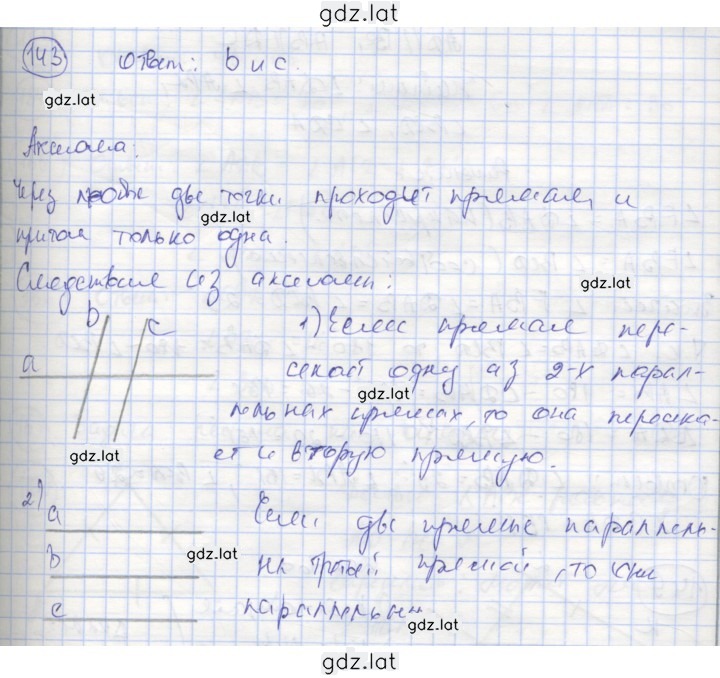 gdz.lat
143 Ответ: b и c.
gdz.lat
Аксиома:
Через любые две точки проходит прямая, и
gdz.lat
притом только одна.
Следствия из аксиомы:
gdz.lat
b c 1) Если прямая пере-
a секает одну из 2-х парал-
gdz.lat
лельных прямых, то она пересека-
ет и вторую прямую.
gdz.lat
2) a Если две прямые параллель-
gdz.lat
b ны третьей прямой, то они
c параллельны
gdz.lat
gdz.lat